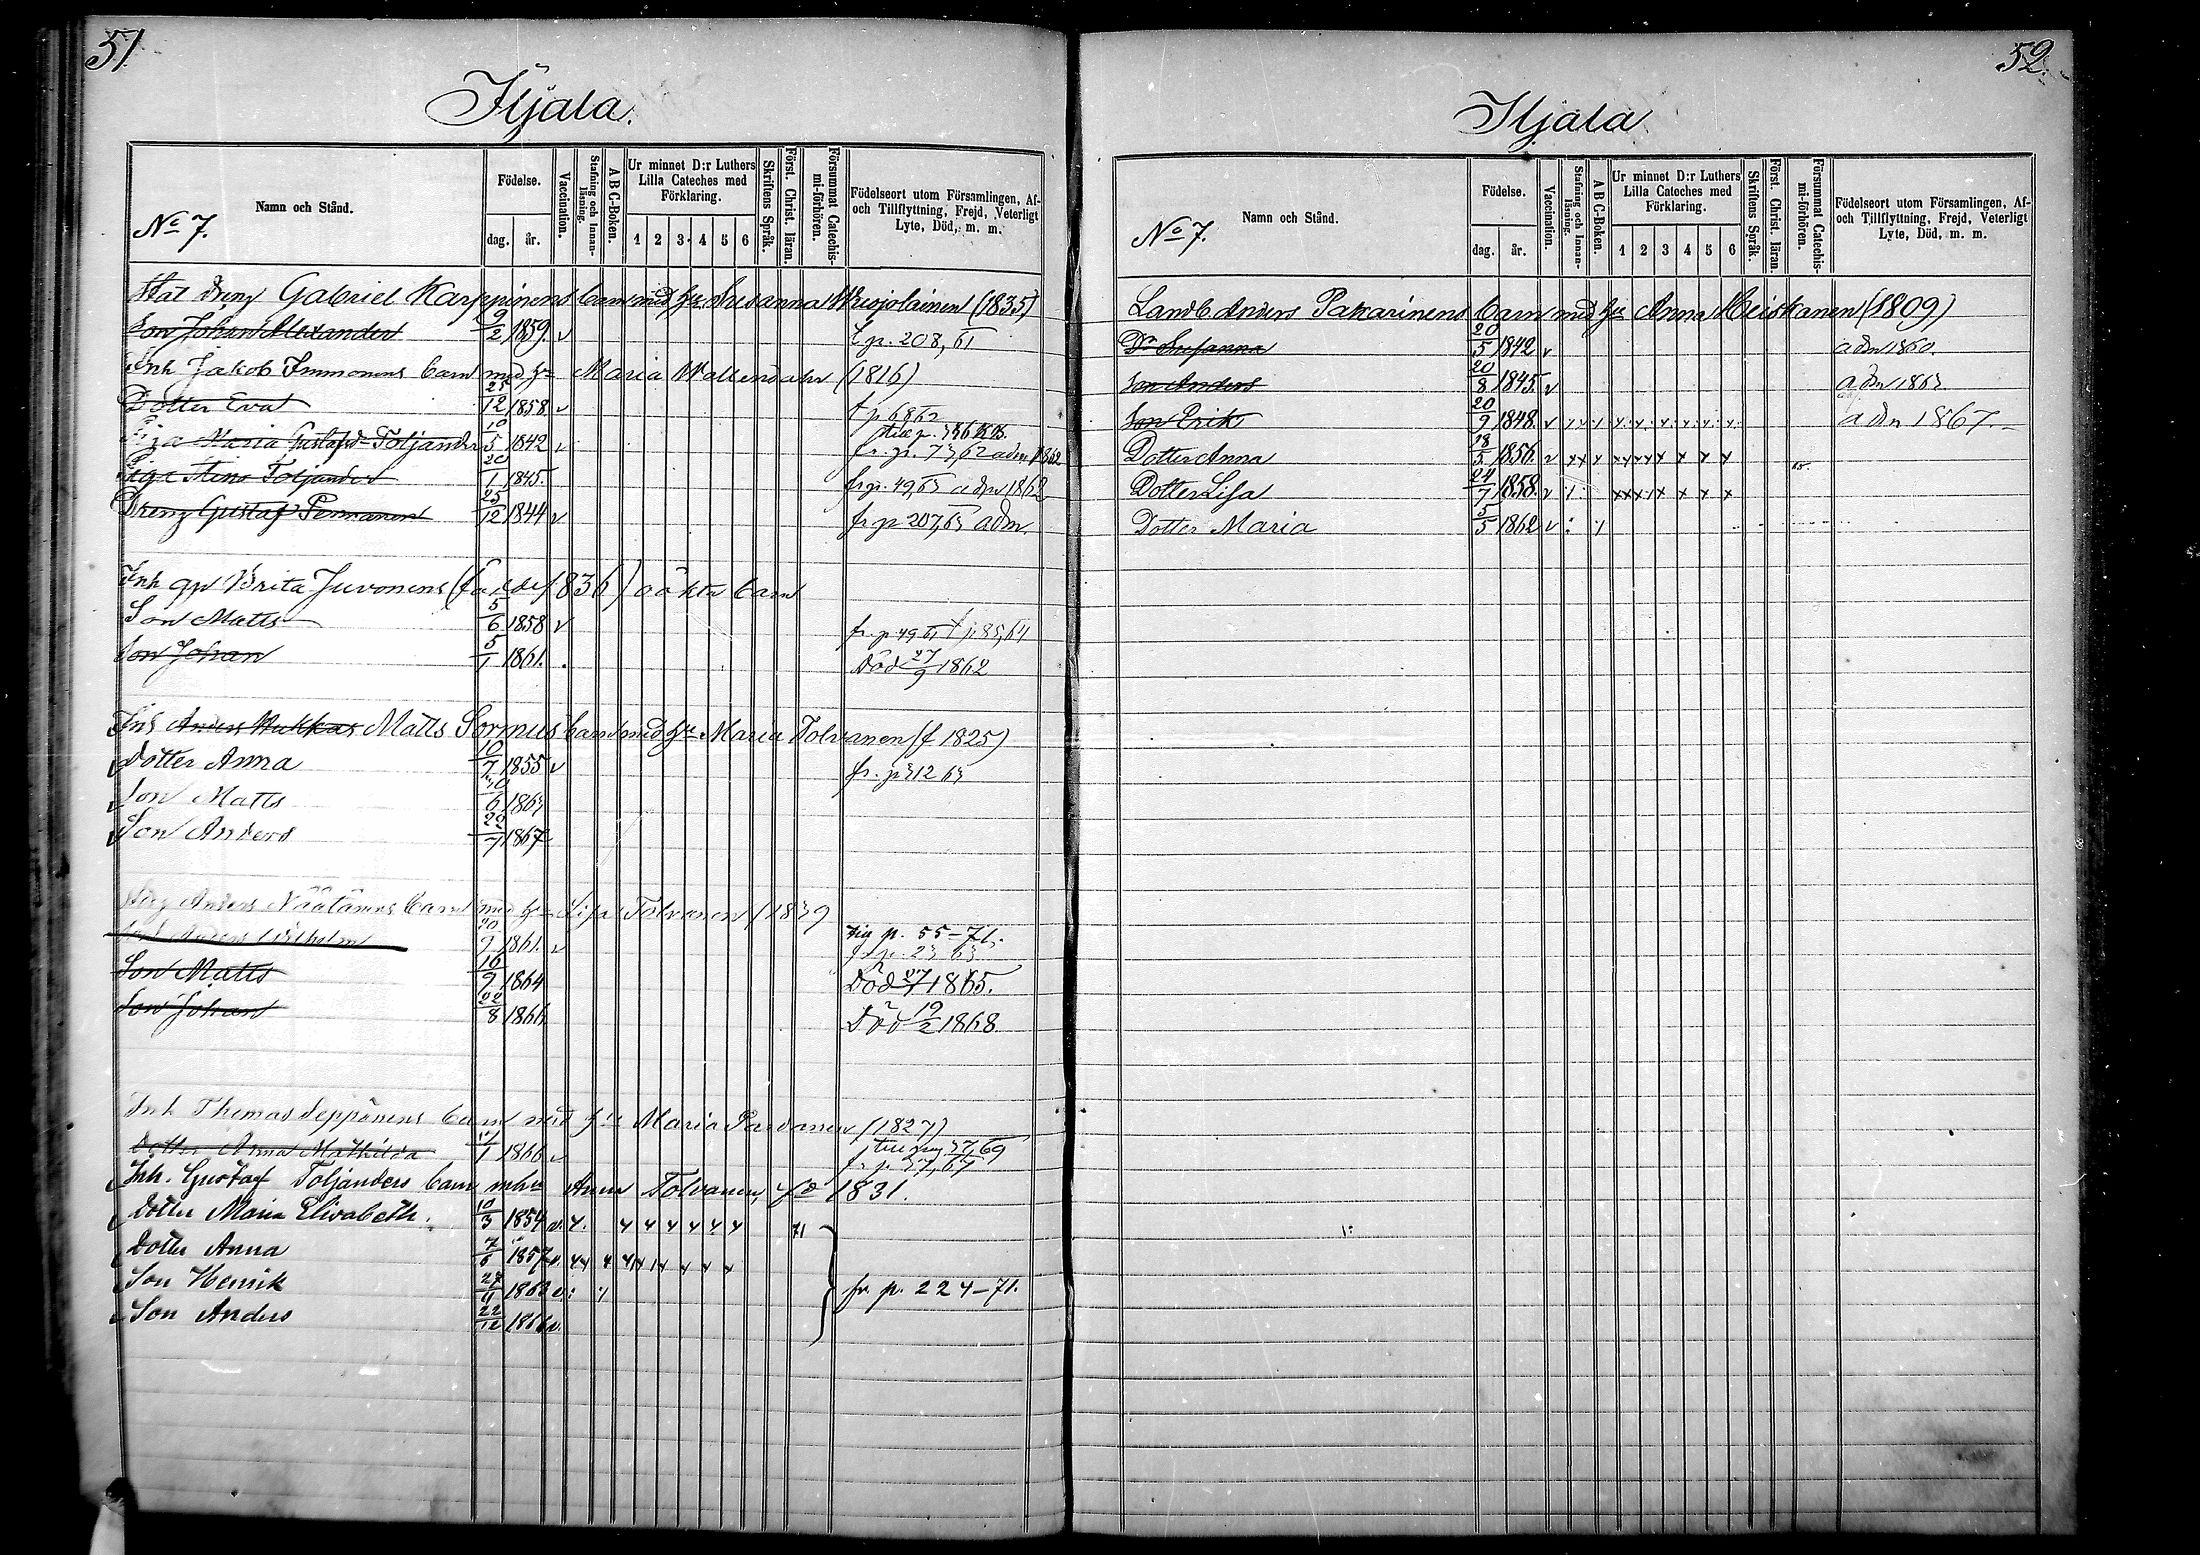 51.
Iljala.
No 7.
Namn och Stånd.
Födelse.
dag. år.
Vaccination.
Stafning och Innan-läsning.
A B C-Boken.
Ur minnet D:r Luthers Lilla Cateches med Förklaring.
1 2 3 4 5 6
Skriftens Språk.
Först. Christ. läran.
Försummat Catechis-mi-förhören.
Födelseort utom Församlingen, Af- och Tillflyttning, Frejd, Veterligt Lyte, Död, m. m.
Stat dreng Gabriel Karppinens barn med hu Susanna (1835)
Son Johan Alexander 9/2 1859. v t p. 208, 61
Inh Jakob Immonens barn med hu Maria Wallendahr (1816)
Dotter Eva 25/12 1858 v
Piga Maria Gustafsd Toljander 10/5 1842 v fr. p. 73, 62 adm 1862
Piga Stina Toljander 20/1 1845. fr. p. 49, 63 adm 1862
Dreng Gustaf Permanen 25/12 1844 v fr p 207, 63 adm.
Inh qp Brita Juvonens (född 1836) oäkta barn
Son Matts 5/6 1858 v fr. p 49 61 t p. 85, 64
Son Johan 5/1 1861. Död 27/9 1862
Inh Anders Matts Sormus barn med hu Maria Tolvanen (f 1825)
Dotter Anna 10/7 1855 v fr. p 312 63
Son Matts 6 1863
Son Anders 29/7 1867
Anders Näätänens barn med hu Lisa Tolvanen (1839
Son Anders Wilhelm 9 1861. v p. 55-71.
fr p. 23 63
Son Matts 16/9 1864 Död 1865.
Son Johan 22/8 1866 Död 19/2 1868
Inh Thomas Seppänens barn med hu Maria Parvanen (1827)
Dotter Anna Mathilda 1 1866 v till pag 37, 69
fr p. 37, 67
Inh. Gustaf Toljanders barn mhu Anna Tolvanen, fd 1831.
Dotter Maria Elisabeth. 10/3 1854 v. 71
Dotter Anna 7/6 1857 v.
Son Henrik 1862 v. fr. p. 224-71.
Son Anders 22/12 1866 v.
52.
Iljala
No 7.
Namn och Stånd.
Födelse.
dag. år.
Vaccination.
Stafning och Innan-läsning.
A B C-Boken.
Ur minnet D:r Luthers Lilla Cateches med Förklaring.
1 2 3 4 5 6
Skriftens Språk.
Först. Christ. läran.
Försumat Catechis-mi-förhören.
Födelseort utom Församlingen, Af- och Tillflyttning, Frejd, Veterligt Lyte, Död, m. m.
Landb. Anders Pakarinens barn med hu Anna Meiskanen (1809)
Dr Susanna 20/5 1842 v adm 1860.
Son Anders 20/8 1845. v adm 1863
Son Erik 20/9 1848. v adm 1867.
Dotter Anna 18/5 1856. v x x x x x x x x x x
Dotter Lisa 24/7 1858. v x x x x x x x 65.
Dotter Maria 5/5 1862 v